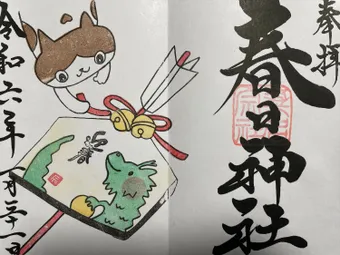 奉拝
春日神社
令和六年一月三十一日